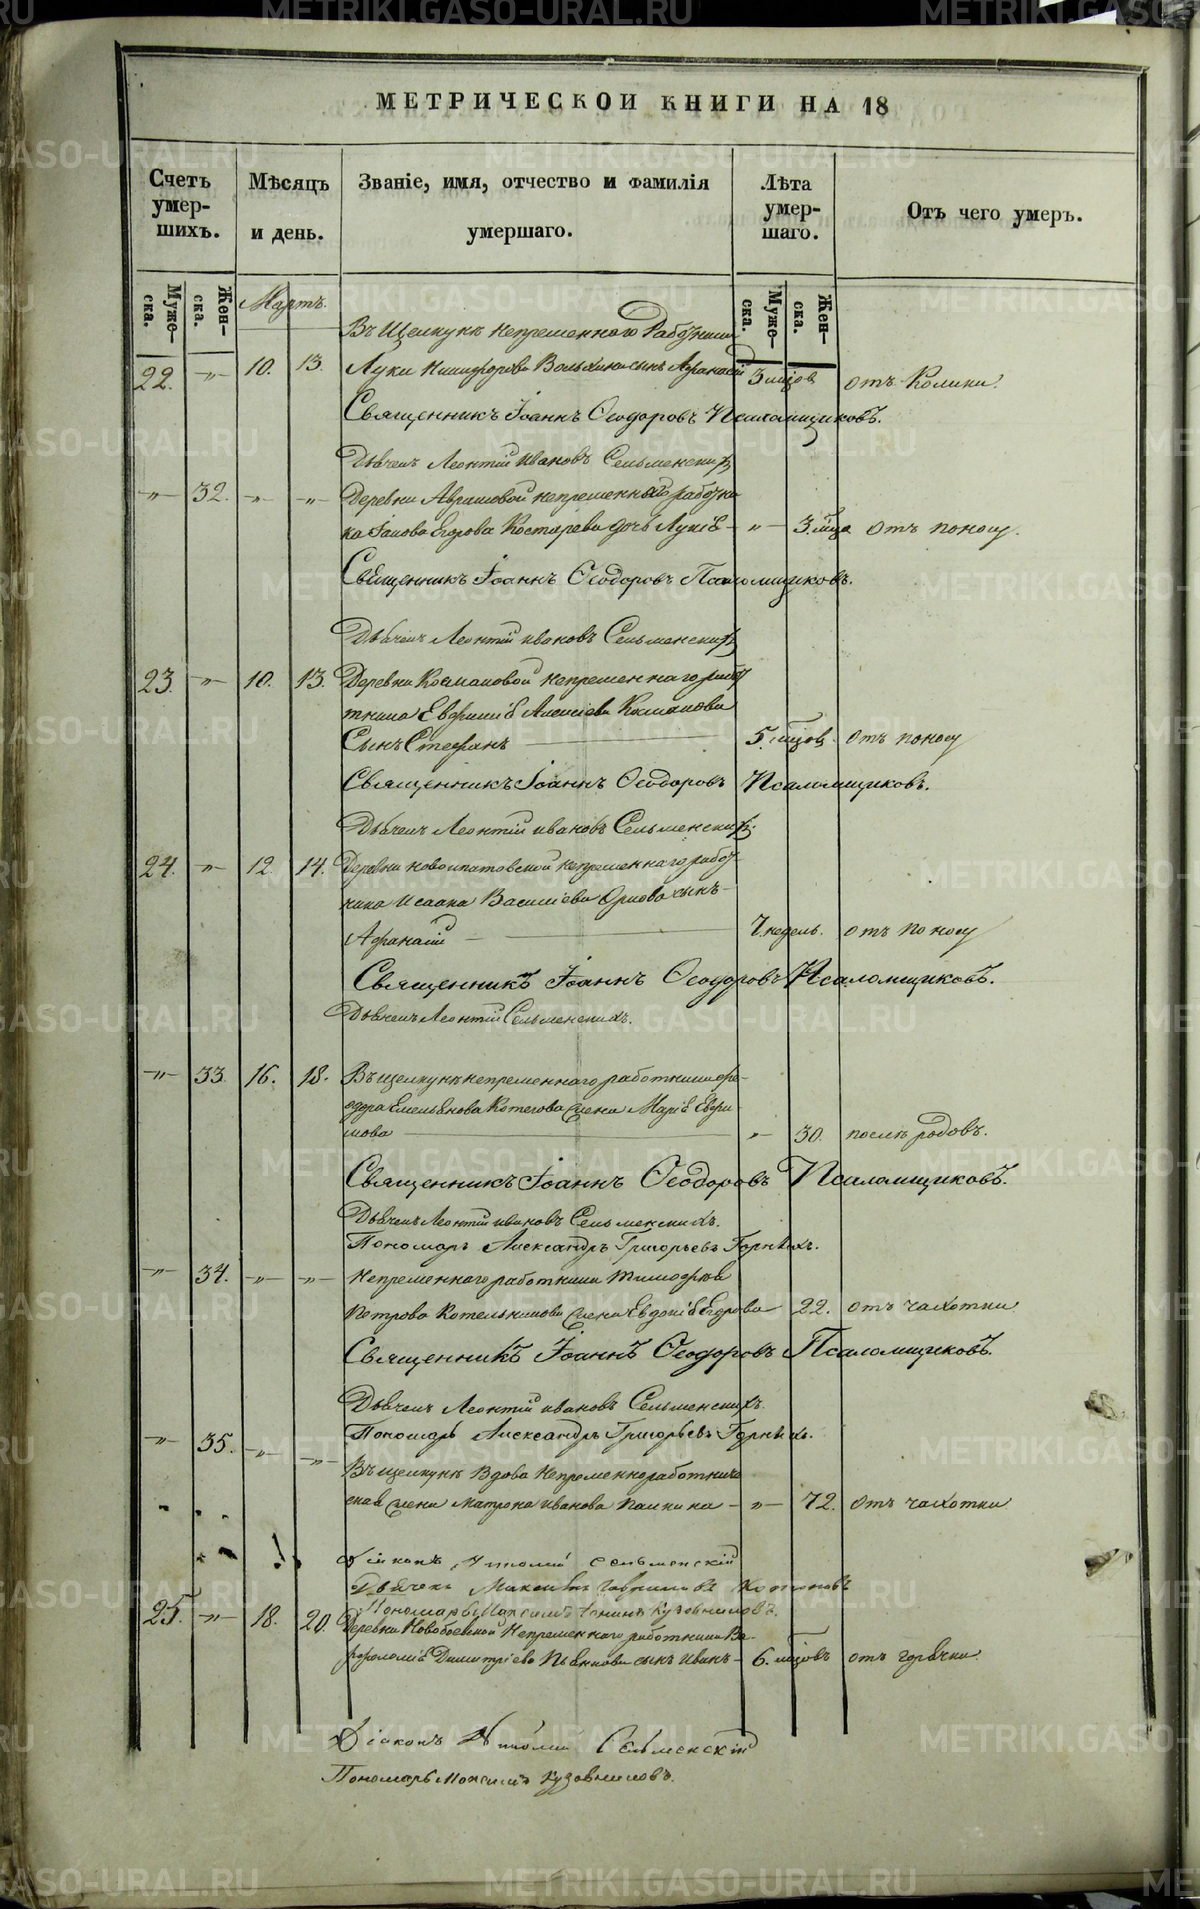 МЕТРИЧЕСКОЙ КНИГИ НА 18
Счетъ умершихъ.
Мѣсяцъ и день.
Званіе, имя, отчество и фамилія умершаго.
Лѣта умершаго.
Отъ чего умеръ.
Мужеска.
Женска.
Мужеска.
Женска.
Мартъ.
Въ Щелкунѣ непременного Работника
22. -„- 10. 13. Луки Никифорова Вольхина сынъ Афанасій 3 мцов отъ Колики.
Священникъ Іоаннъ Ѳеодоровъ Псаломщиковъ.
Дьячекъ Леонтій Ивановъ Сельменскихъ
-„- 32. -„- -„- Деревни Аврамовой непременного работни
ка Іакова Егорова Костарева дочь Лукіѣ -„- 3 мца отъ поносу.
Священникъ Іоаннъ Ѳеодоровъ Псаломщиковъ.
Дьячекъ Леонтій ивановъ Сельменскихъ
23. -„- 10. 13. Деревни Космаковой непременнаго рабо
тника Евфиміѣ Алексіева Космакова
Сынъ Стефанъ 5 мцов. отъ поносу
Священникъ Іоаннъ Ѳеодоровъ Псаломщиковъ.
Дьячекъ Леонтій ивановъ Сельменскихъ.
24. -„- 12. 14. Деревни новоипатовской непременнаго работ
ника Исаака Василіева Орлова сынъ
Афанасій 7. недель. отъ поносу
Священникъ Іоаннъ Ѳеодоровъ Псаломщиковъ.
Дьячекъ Леонтій Сельменскихъ.
-„- 33. 16. 18. Въ щелкунѣ непременнаго работника Фе-
одора Емельянова Котегова жена Маріѣ Ефри
мова -„- 30. послѣ родовъ.
Священникъ Іоаннъ Ѳеодоровъ Псаломщиковъ.
Дьячекъ Леонтій ивановъ Сельменскихъ.
Пономарь Александръ Григорьевъ Горныхъ.
-„- 34. -„- -„- Непременнаго работника Тимофѣя
Петрова Котельникова жена Евдокіѣ Егорова 22. отъ чахотки
Священникъ Іоаннъ Ѳеодоровъ Псаломщиковъ.
Дьячекъ Леонтій ивановъ Сельменскихъ.
Пономарь Александръ Григорьевъ Горныхъ.
-„- 35. -„- -„- Въ щелкунѣ Вдова Непременноработниче
ская жена Матрона иванова Палкина -„- 72. отъ чахотки
Діаконъ Сельменскій
Дьячекъ Максимъ Гавриловъ
Пономарь Максимъ Кузовниковъ.
25. -„- 18. 20. Деревни Новобоевской Непременнаго работника Ва-
рфоломіѣ Димитріева Пьянкова сынъ Иванъ 6. мцовъ отъ горячки.
Діаконъ Сельменскій
Пономарь Максимъ Кузовниковъ.
METRIKI.GASO-URAL.RU